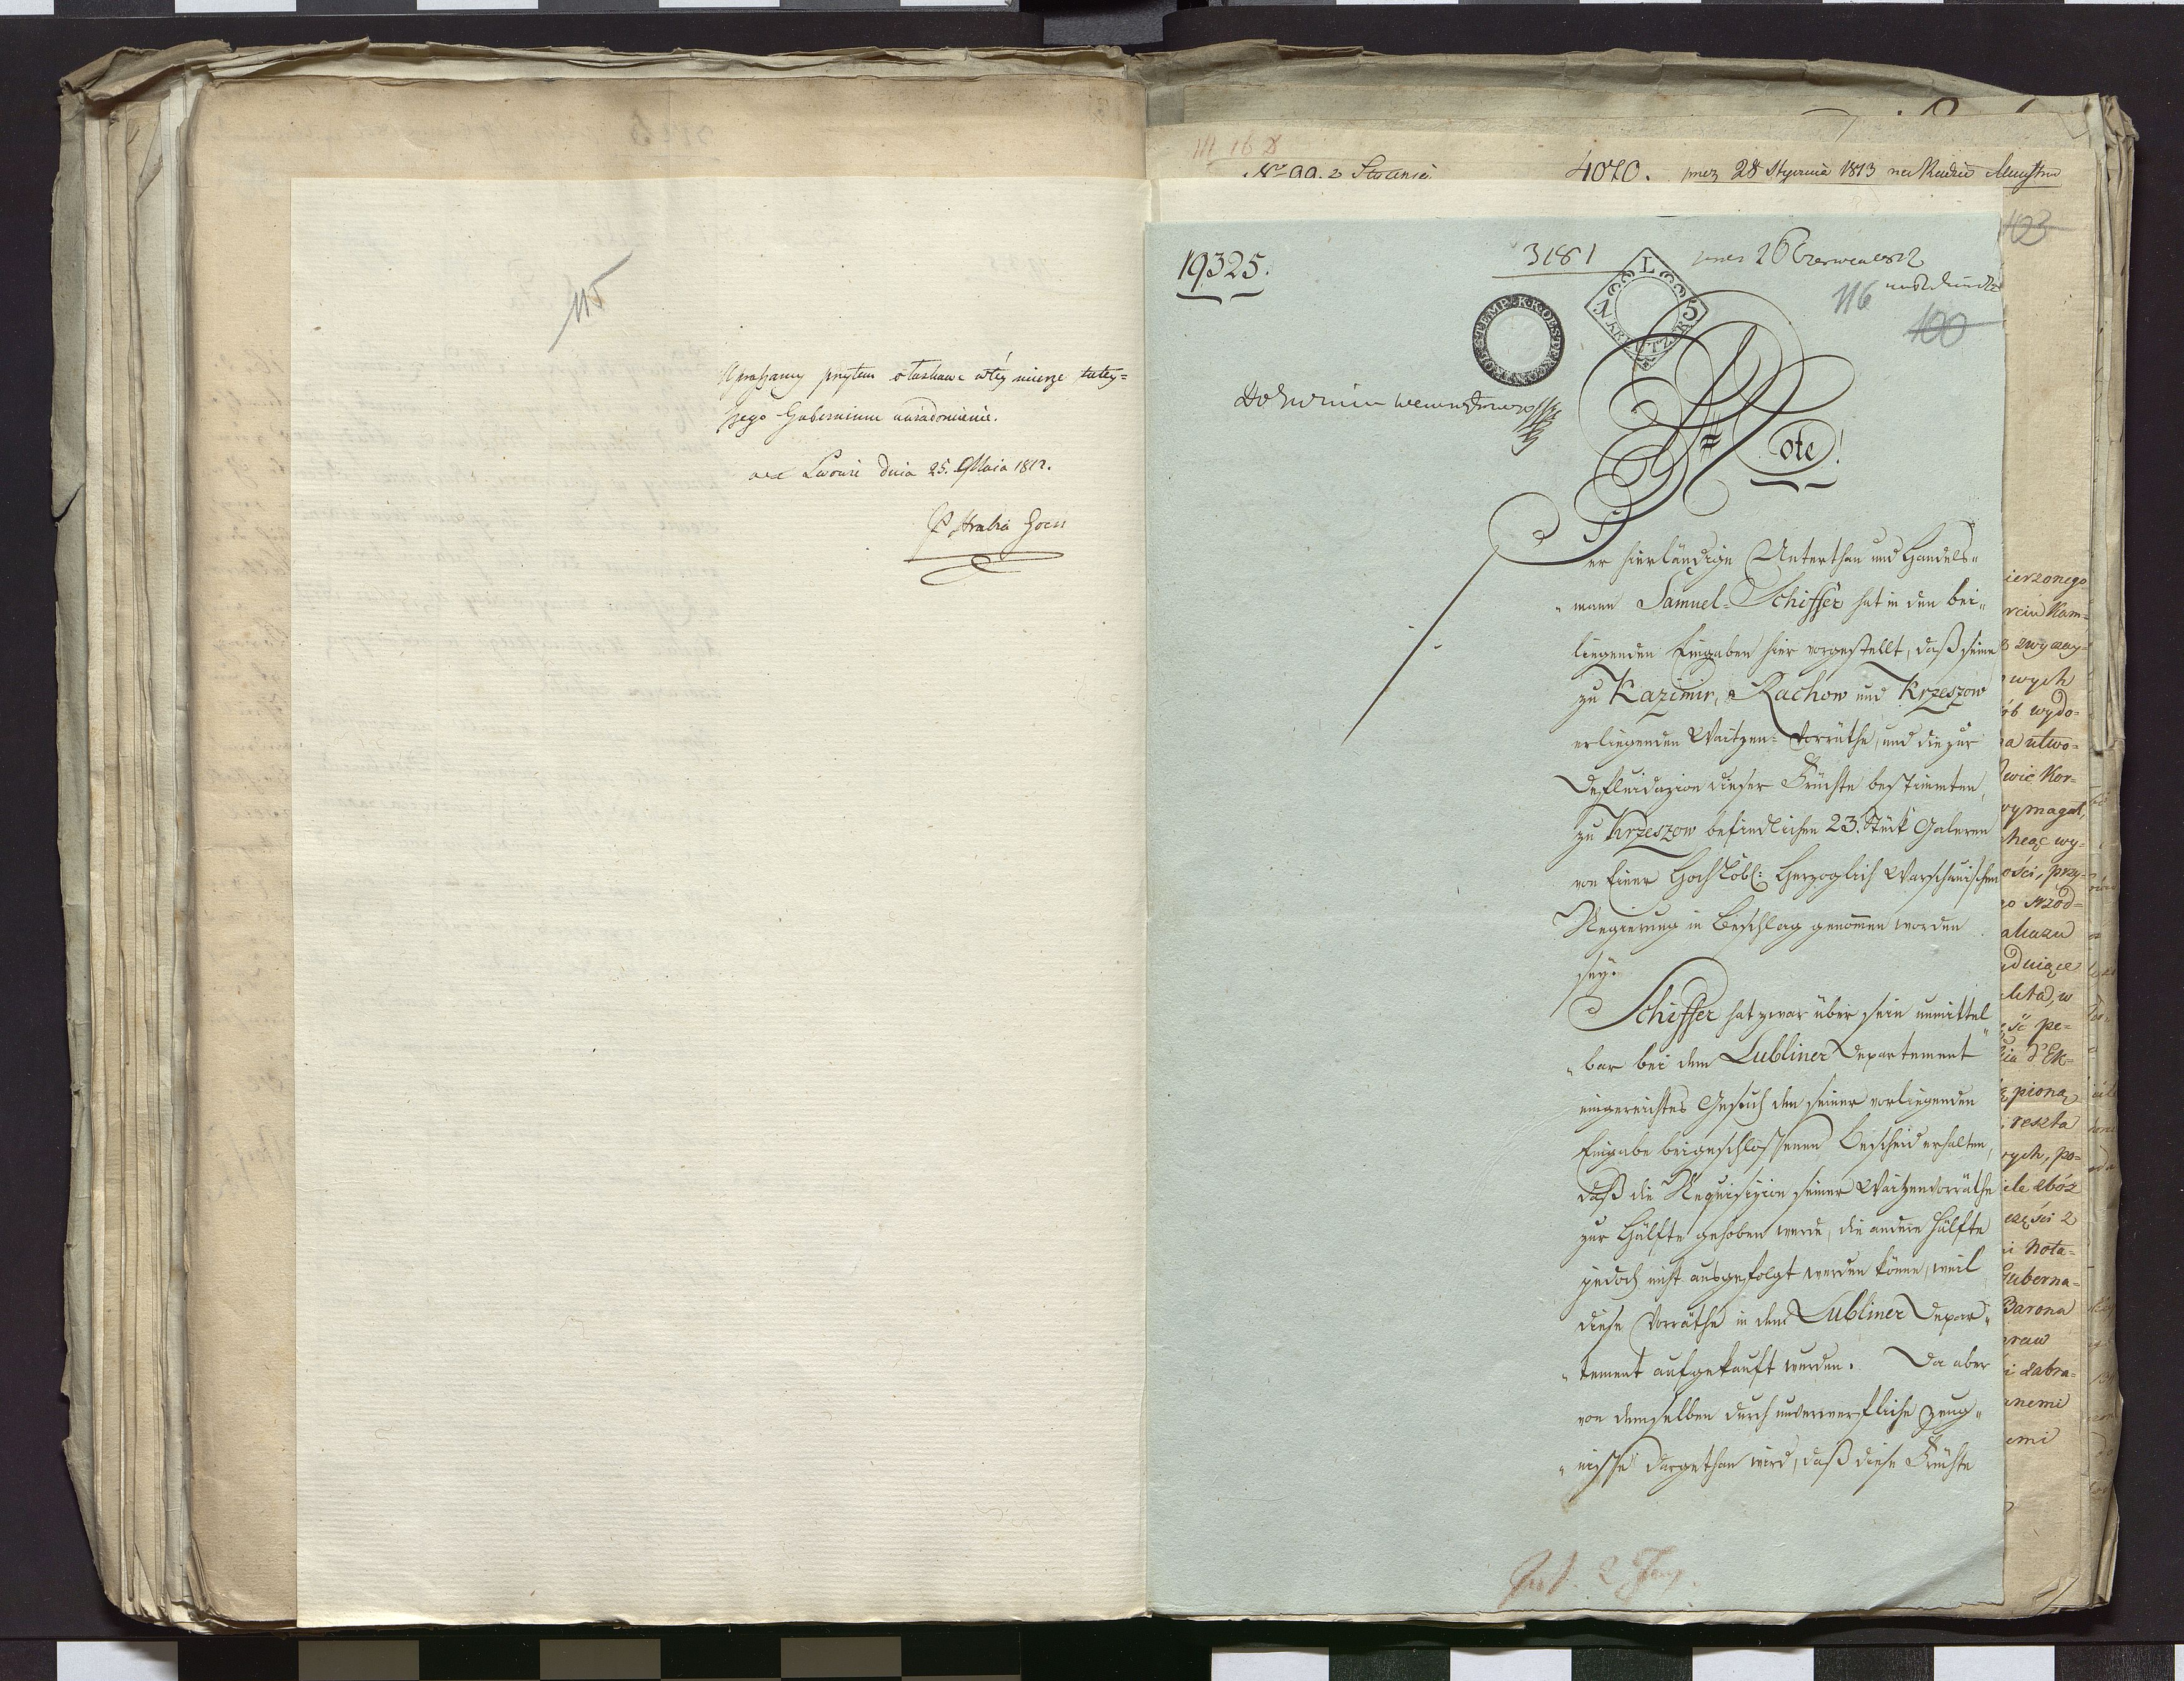 115
Upraszamy przytem o łaskawe w téy mierze tutey=
szego Gubernium uwiadomienie.
we Lwowie dnia 25. Maia 1812.
P Hrabia Goess
N 99. 2 Stycznia 4070. prez 28 Stycznia 1813 na Radzie Ministrów
123
19325.
3181
prez 26 Czerwca 1812
116
100
L
5
KREUTZER
Note!
Der hierländige Unterthan und Handels-
mann Samuel Schiffer hat in den bei-
liegenden Eingaben hier vorgestellt, daß seine
zu Kazimir, Rachow und Krzeszow
erliegenden Waitzen-Vorräthe, und die zur
Defluidazion dieser Früchte bestimmten,
zu Krzeszow befindlichen 23. Stük Galeren
von Einer Hochlöbl: Herzoglich Warschauischen
Regierung in Beschlag genommen worden
sey.
Schiffer hat zwar über sein unmittel
bar bei dem Lubliner Departement
eingereichtes Gesuch den seiner vorliegenden
Eingabe beigeschlossenen Bescheid erhalten,
daß die Requisizion seiner Waitzenvorräthe
zur Hälfte gehoben werde, die andere Hälfte
jedoch nicht ausgefolgt werden könne, weil
diese Vorräthe in dem Lubliner Depar-
tement aufgekauft wurden. Da aber
von demselben durch unverwerfliche Zeug-
nisse dargethan wird, daß diese Früchte
ierzonego
zwyczay=
wych
wydo=
a utwo=
Kor=
ymagał,
wy=
ości, przy=
pe=
reszta
ych, po=
Nota=
Guberna=
Barona
zabra=
emi